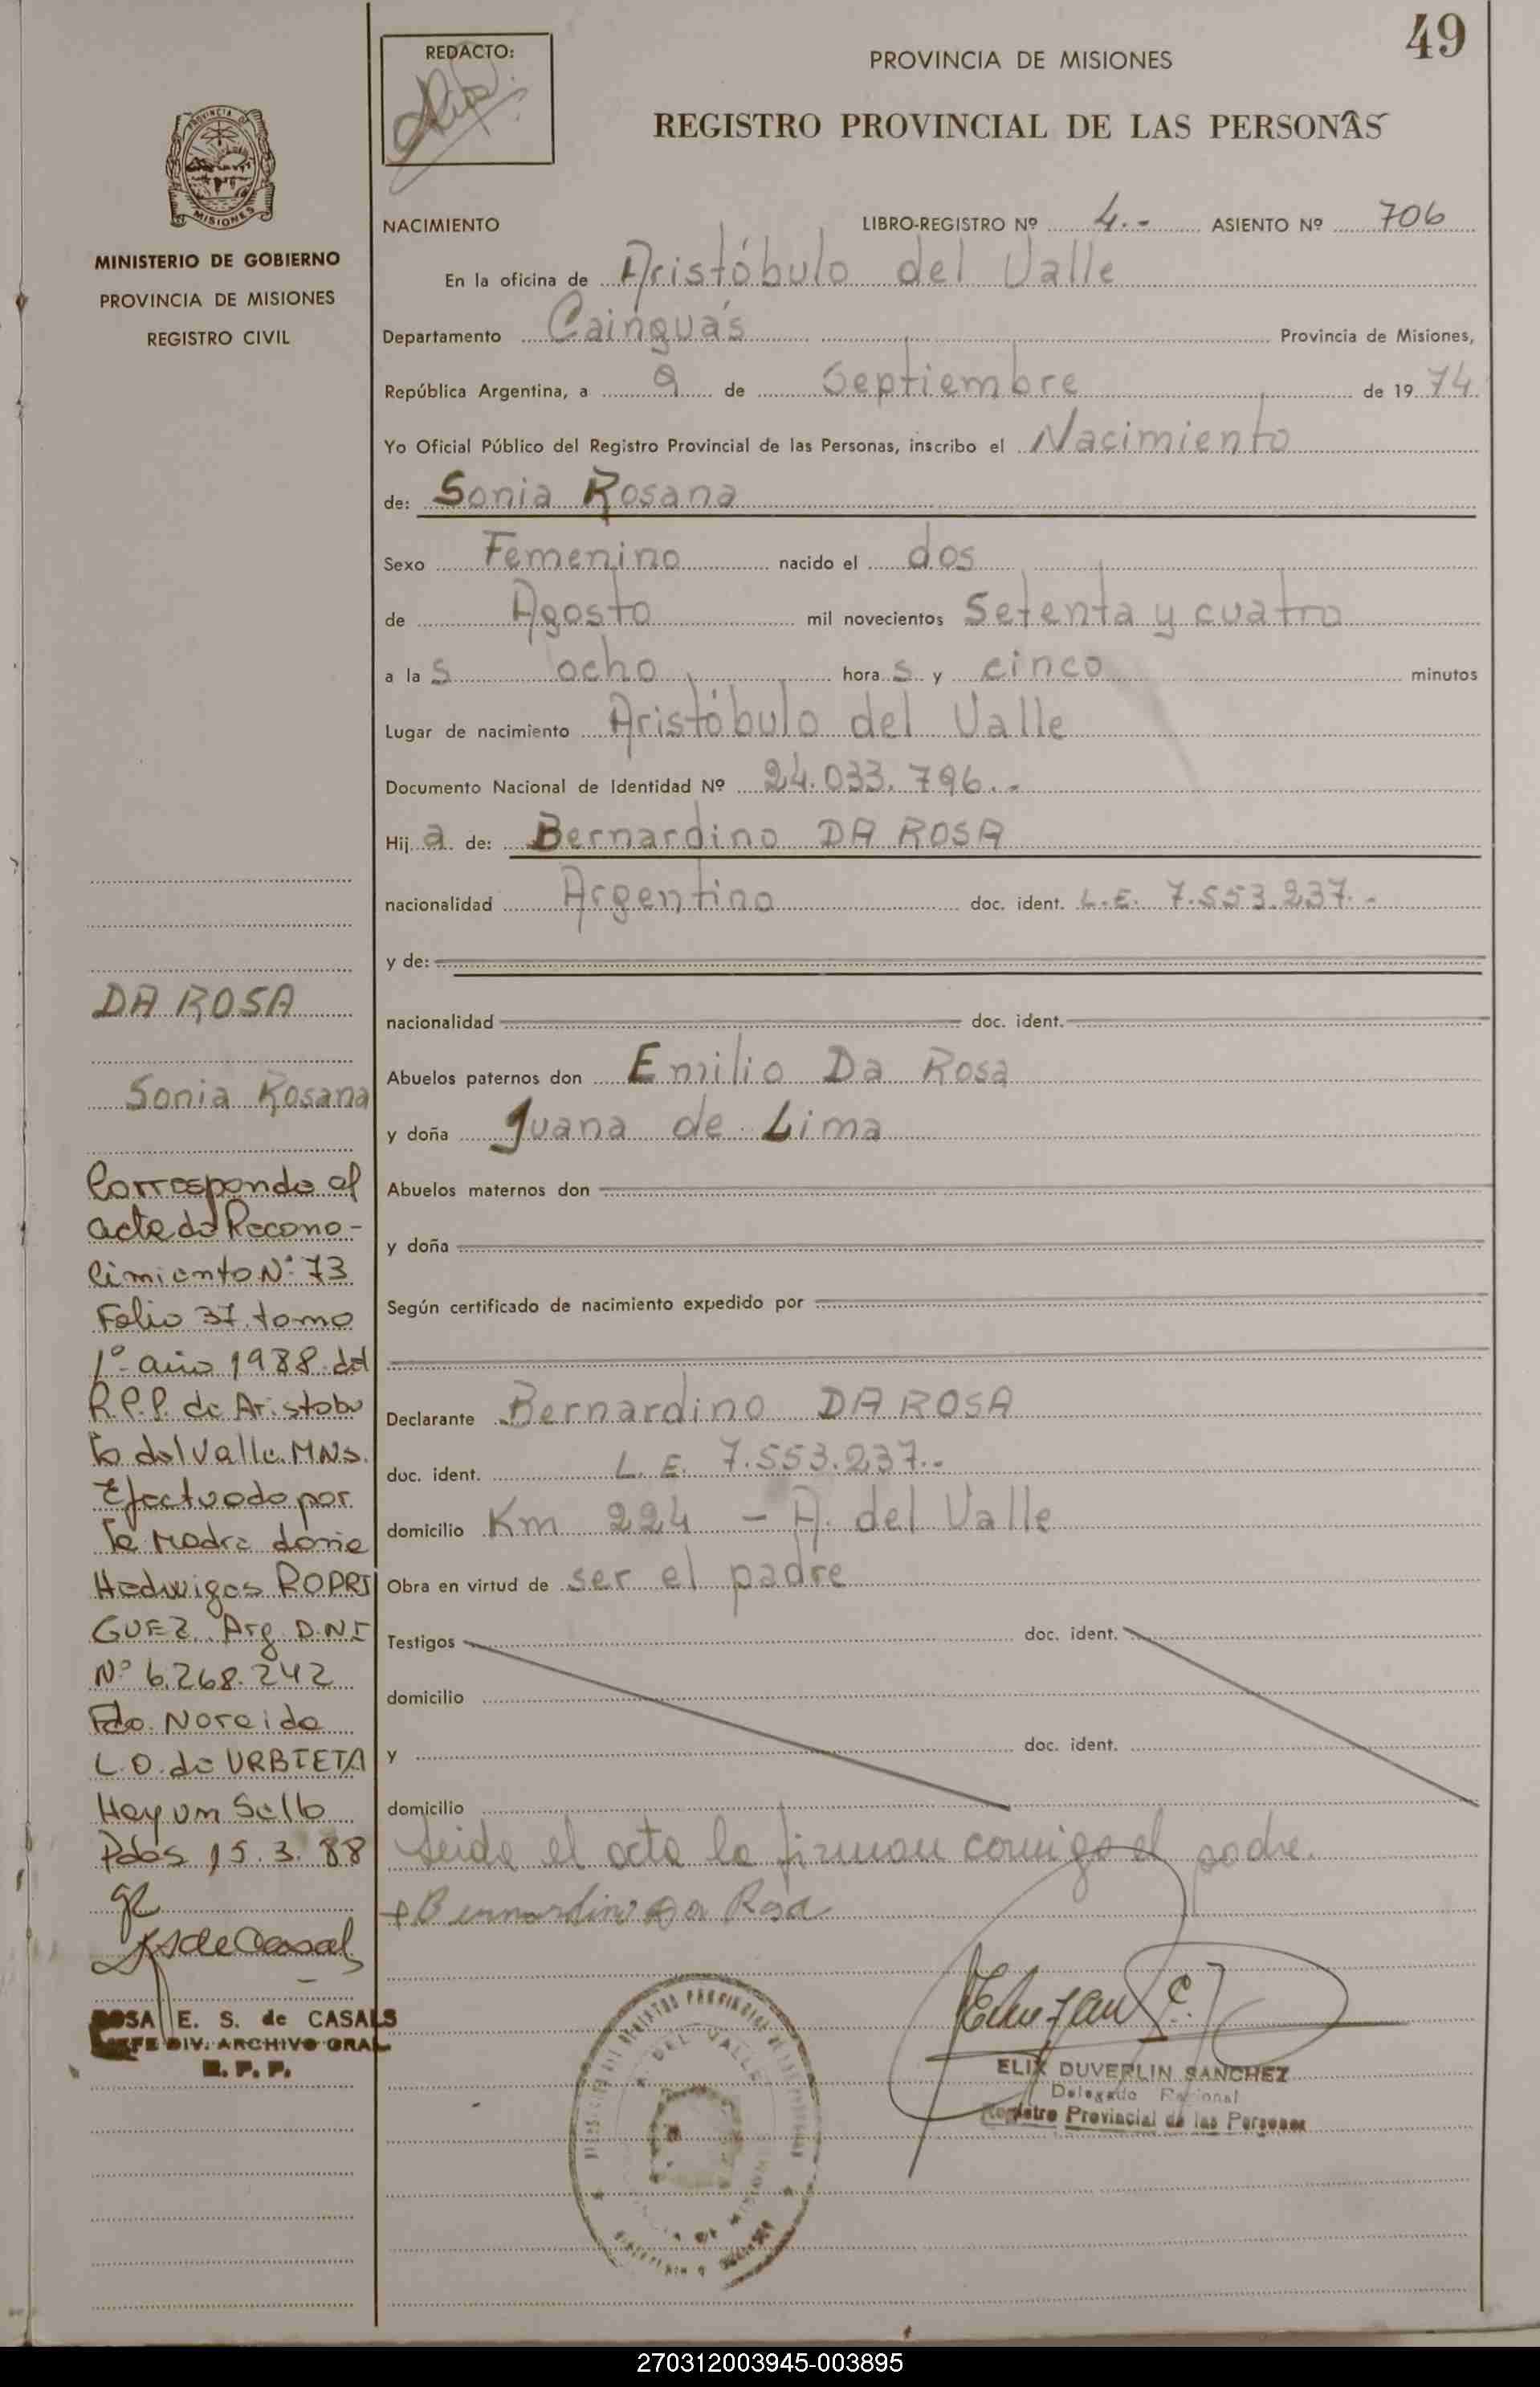 49
REDACTO:
PROVINCIA DE MISIONES
REGISTRO PROVINCIAL DE LAS PERSONAS
PROVINCIA DE
MISIONES
MINISTERIO DE GOBIERNO
PROVINCIA DE MISIONES
REGISTRO CIVIL
NACIMIENTO LIBRO-REGISTRO Nº 4.- ASIENTO Nº 706
En la oficina de Aristóbulo del Valle
Departamento Cainguás Provincia de Misiones,
República Argentina, a 9 de Septiembre de 19 74
Yo Oficial Público del Registro Provincial de las Personas, inscribo el Nacimiento
de: Sonia Rosana
Sexo Femenino nacido el dos
de Agosto mil novecientos Setenta y cuatro
a la s ocho hora s y cinco minutos
Lugar de nacimiento Aristóbulo del Valle
Documento Nacional de Identidad Nº 24.033.796.-
Hij a de: Bernardino DA ROSA
nacionalidad Argentino doc. ident. L.E. 7.553.237.-
y de:
nacionalidad doc. ident.
Abuelos paternos don Emilio Da Rosa
y doña Juana de Lima
Abuelos maternos don
y doña
Según certificado de nacimiento expedido por
Declarante Bernardino DA ROSA
doc. ident. L.E. 7.553.237.-
domicilio Km 224 - A. del Valle
Obra en virtud de ser el padre
Testigos doc. ident.
domicilio
y doc. ident.
domicilio
Leida el acta la firman comigo el padre.
Bernnardino Da Rosa
ELIX DUVERLIN SANCHEZ
Delegado Regional
Registro Provincial de las Personas
DA ROSA
Sonia Rosana
Corresponde al
acta de Recono-
cimiento Nº 73
Folio 37 tomo
1º año 1988 del
R.P.P. de Aristobu
lo del Valle. MNs.
Efectuado por
la Madre doña
Hedwiges RODRI
GUEZ. Arg. D.N.I
Nº 6.268.242
Fdo. Noreida
L.O. de URBIETA
Hay un Sello
Pdas 15.3.88
ROSA E. S. de CASALS
JEFE DIV. ARCHIVO GRAL
R. P. P.
270312003945-003895